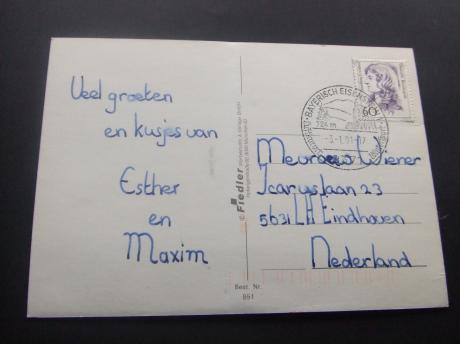 Veel groeten
en kusjes van
Esther
en
Maxim
Fiedler
BAYERISCH EISENSTEIN
724 m
60
Mevrouw Wiener
Icaruslaan 23
5631 LH Eindhoven
Nederland
Best. Nr.